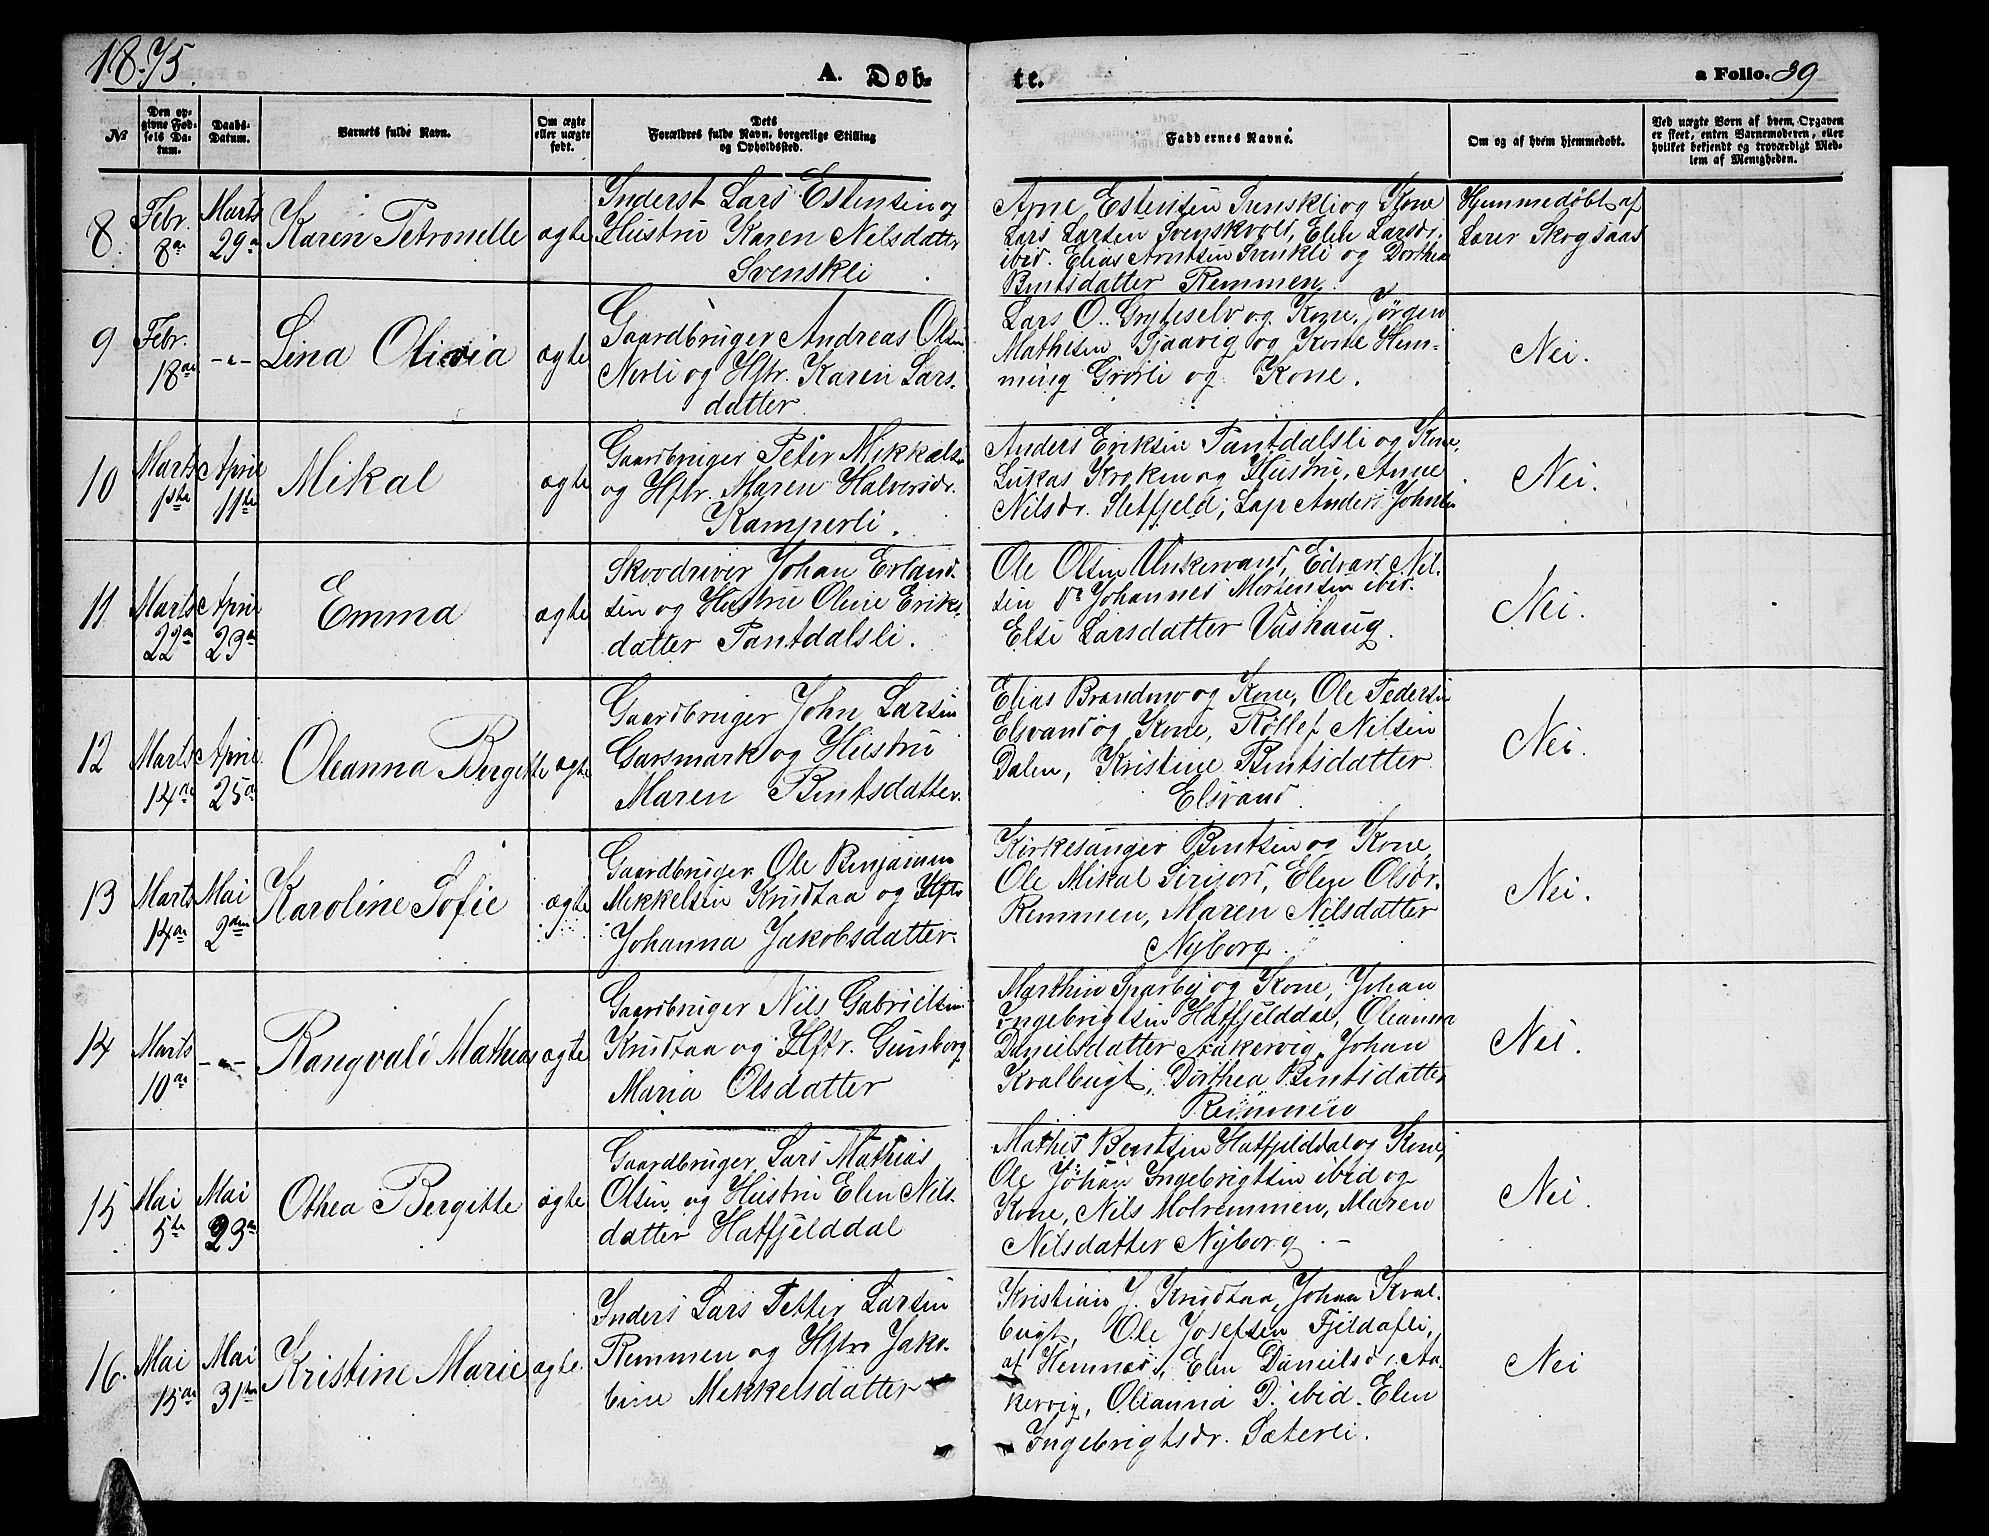 1875.
A. Døb-
te.
a Folio. 39
No
Den op-
givne Fød-
sels Da-
tum.
Daabs-
Datum.
Barnets fulde Navn.
Om ægte
eller uægte
født.
Dets
Forældres fulde Navn, borgerlige Stilling
og Opholdssted.
Faddernes Navne.
Om og af hvem hjemmedøbt.
Ved uægte Børn af hvem Opgaven
er skeet, enten Barnemoderen, eller
hvilket bekjendt og troværdigt Med-
lem af Menigheden.
8
Febr.
8de
Marts
29de
Karen Petronelle
ægte
Inderst Lars Estensen og
Hustru Karen Nilsdatter
Svenskli
Arne Estensen Svenskli og Kone
Lars Larsen Svenskvold, Elen Larsdr.
ibid. Elias Arntsen Svenkli og Dorthea
Bentsdatter Remmen.
Hjemmedøbt af
Lærer Skogsaas
9
Febr.
18de
-"-
Lina Olivia
ægte
Gaardbruger Andreas Olsen
Nerli og Hstr. Karen Lars-
datter
Lars O. Gryteselv og Kone, Jørgen
Mathisen Sjaavig og Kone Hem-
ming Grørli og Kone.
Nei.
10
Marts
1ste
April
11te
Mikal
ægte
Gaardbruger Peter Mikkels.
og Hstr. Maren Halversdr.
Kamperli.
Anders Eriksen Pantdalsli og Kone,
Lukas Kroken og Hustru, Anne
Nilsdr. Sletfjeld; Lap Anders Johnsen
Nei.
11
Marts
22de
April
23de
Emma
ægte
Skoddriver Johan Erland-
sen og Hustru Oline Eriks-
datter Pantdalsli.
Ole Olsen Unkervand, Edvard Nil-
sen Dr Johannes Mortensen ibid.
Else Larsdatter Vashaug.
Nei.
12
Marts
14de
April
25de
Oleanna Bergitte
ægte
Gaardbruger John Larsen
Garsmark og Hustru
Maren Bentsdatter.
Elias Brandmo og Kone, Ole Pedersen
Elsvand og Kone, Rollef Nilsen
Dalen, Kristine Bentsdatter
Elsvand.
Nei.
13
Marts
14de
Mai
2den
Karoline Sofie
ægte
Gaardbruger Ole Benjamin
Mikkelsen Krudtaa og Hstr
Johanna Jakobsdatter.
Kirkesanger Bentsen og Kone,
Ole Mikal Sirijord, Elen Olsdr.
Remmen, Maren Nilsdatter
Nyborg.
Nei.
14
Marts
10de
-"-
Rangvald Mathias
ægte
Gaardbruger Nils Gabrielsen
Krudtaa og Hstr. Gunborg
Maria Olsdatter
Marthin Sparby og Kone, Johan
Ingebrigtsen Hatfjelddal, Oleanna
Danielsdatter Aakervig, Johan
Kvalbugt, Dorthea Bentsdatter
Remmen
Nei.
15
Mai
5te
Mai
23de
Othea Bergitte
ægte
Gaardbruger Lars Mathias
Olsen og Hustru Elen Nils-
datter Hatfjelddal
Mathis Bentsen Hatfjelddal og Kone,
Ole Johan Ingebrigtsen ibid og
Kone, Nils Molremmen, Maren
Nilsdatter Nyborg. -
Nei.
16.
Mai
15de
Mai
31te
Kristine Marie
ægte
Inders Lars Petter Larsen
Remmen og Hstr. Jako-
bine Mekkelsdatter
Kristian J. Krudtaa, Johan Kval-
bugt, Ole Josefsen Fjeldafli,
af Hemnæs, Elen Danielsd., Aa-
kervig, Oleanna D. ibid. Elen
Ingebrigtsdr. Sæterli.
Nei